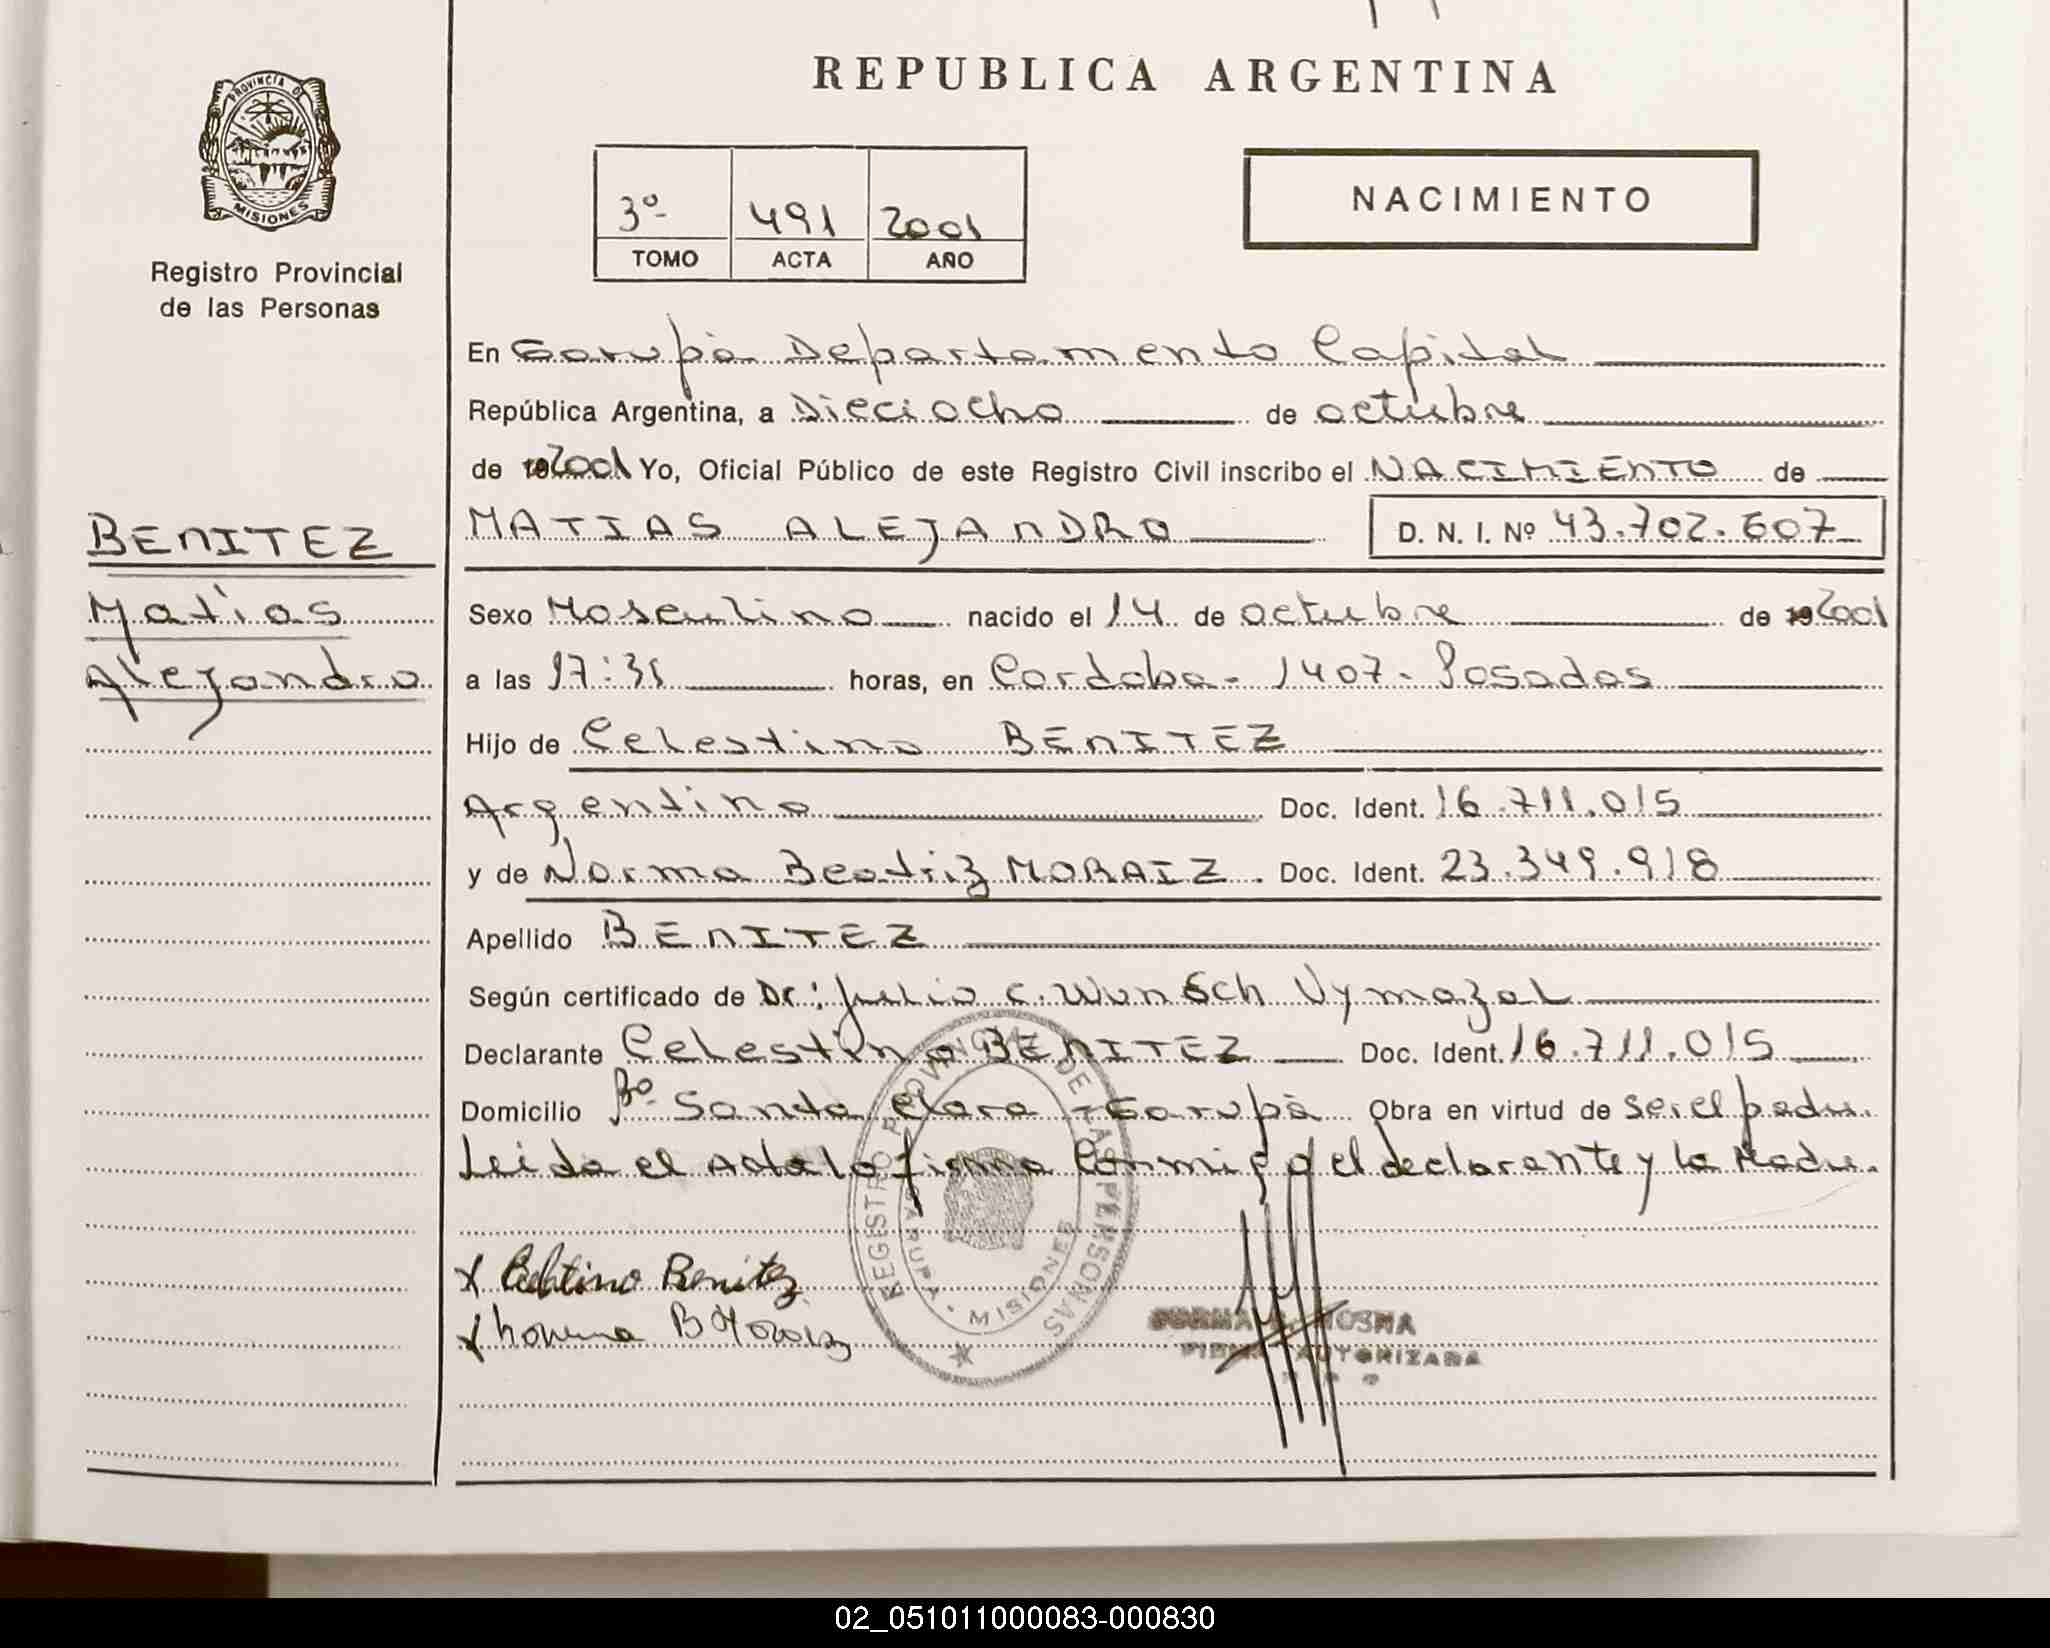 REPUBLICA ARGENTINA
PROVINCIA DE
MISIONES
Registro Provincial
de las Personas
3º 491 2001
TOMO ACTA AÑO
NACIMIENTO
En Garupà Departamento Capital
República Argentina, a Dieciocho de octubre
de 192001 Yo, Oficial Público de este Registro Civil inscribo el NACIMIENTO de
MATIAS ALEJANDRO D. N. I. Nº 43.702.607
BENITEZ
Matias
Alejandro
Sexo Masculino nacido el 14 de octubre de 192001
a las 17:35 horas, en Cordoba - 1407 - Posadas
Hijo de Celestino BENITEZ
Argentino Doc. Ident. 16.711.015
y de Norma Beatriz MORAIZ Doc. Ident. 23.349.918
Apellido BENITEZ
Según certificado de Dr: Julio C. Wunsch Vymazal
Declarante Celestino BENITEZ Doc. Ident. 16.711.015
Domicilio Bº Santa Clara - Garupà Obra en virtud de ser el padre.
Leida el Acta la firma Conmigo el declarante y la Madre.
REGISTRO PROVINCIAL DE LAS PERSONAS
GARUPA • MISIONES
x Celestino Benitez
x Norma B Moraiz
NORMA MOSNA
FIRMA AUTORIZADA
02_051011000083-000830